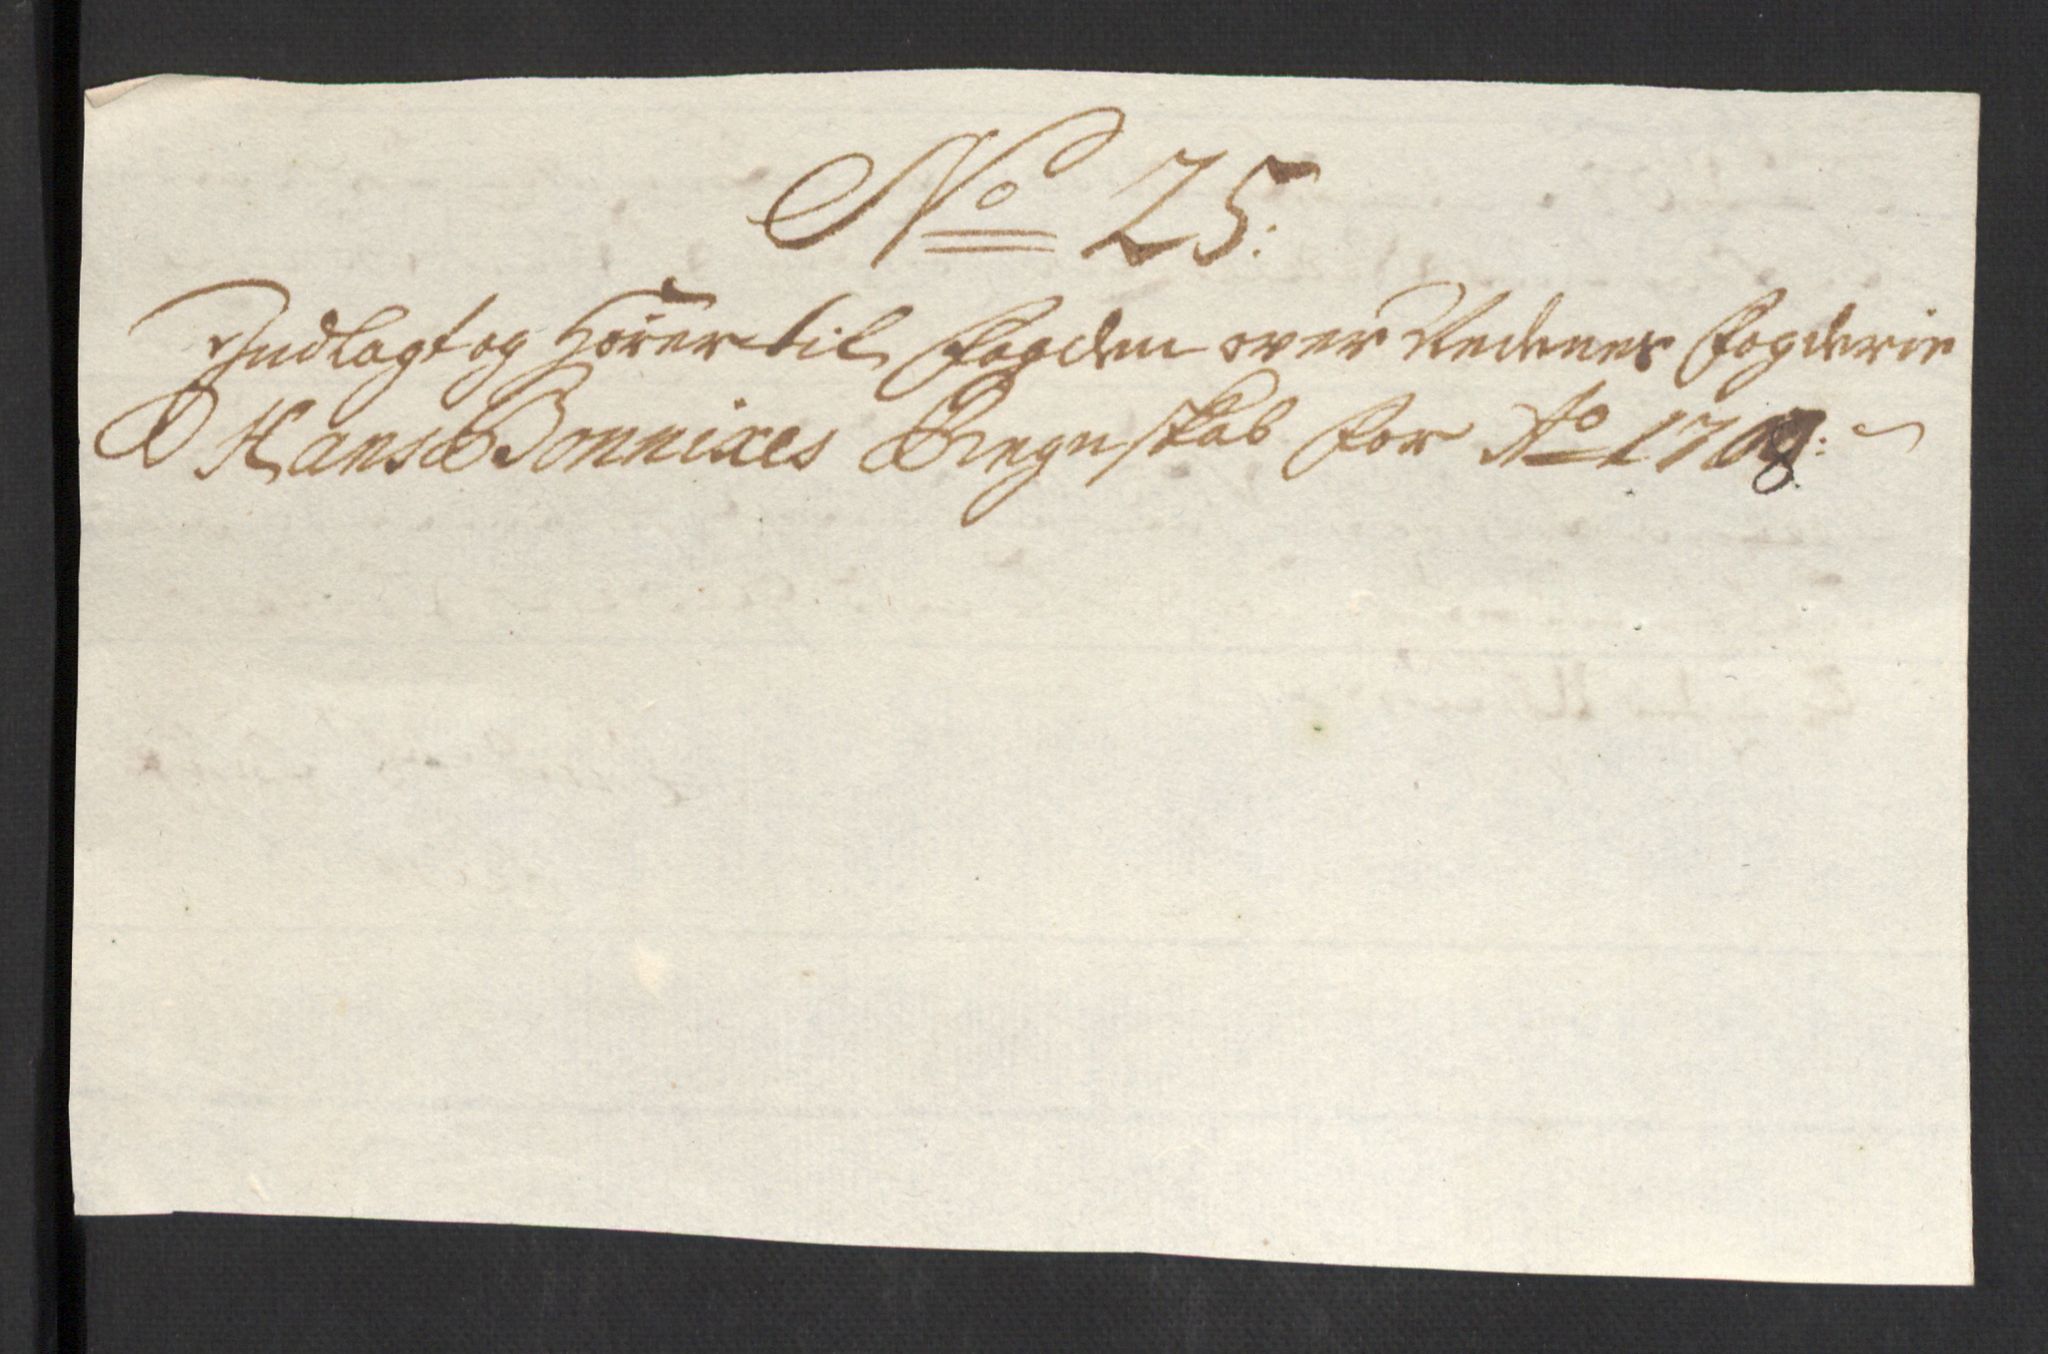 No 25:
Indlagt og hører til Fogden over Nedenes Fogderie
Hans Bonnixes Regnskab for Ao 1708: